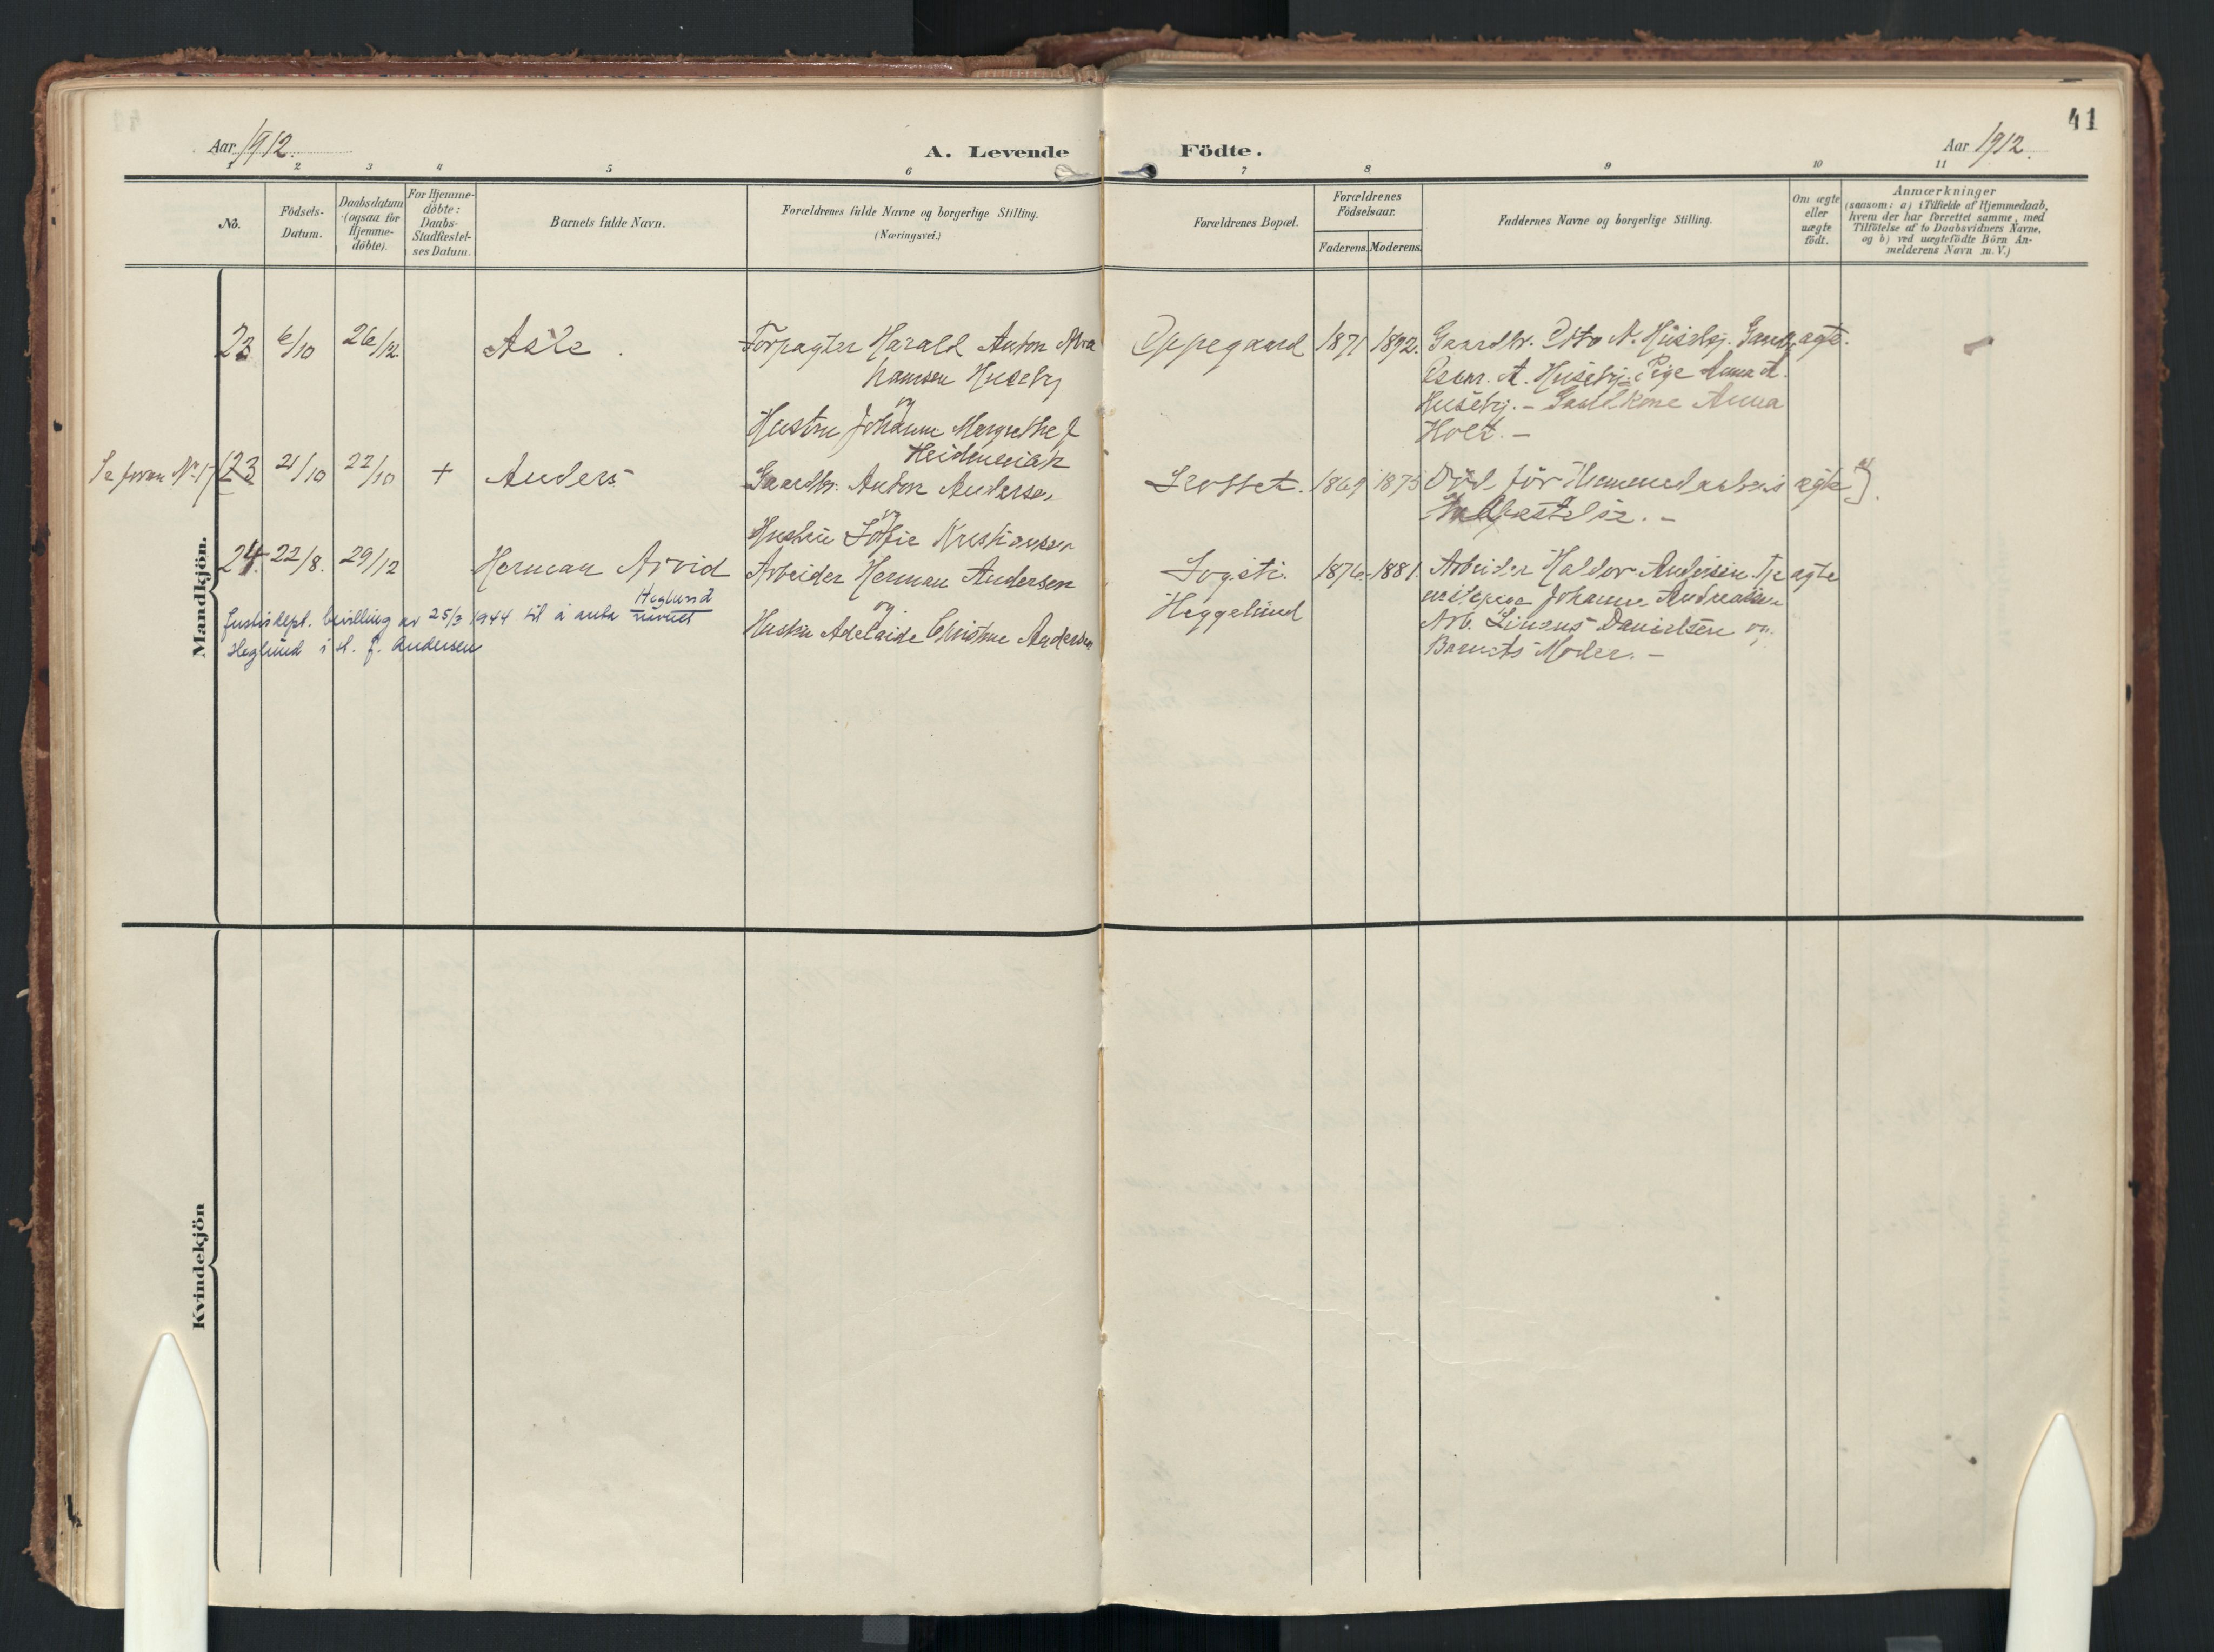 41
Aar 1912.
A. Levende Födte.
Aar 1912.
1 2 3 4 5 6 7 8 9 10 11
No.
Födsels-Datum.
Daabsdatum (ogsaa for Hjemme-döbte).
For Hjemme-döbte: Daabs-Stadfæstel-ses Datum.
Barnets fulde Navn.
Forældrenes fulde Navne og borgerlige Stilling.
(Næringsvei.)
Forældrenes Bopæl.
Forældrenes Födselsaar.
Faderens. Moderens.
Faddernes Navne og borgerlige Stilling.
Om ægte eller uægte födt.
Anmærkninger
(saasom: a) i Tilfælde af Hjemmedaab,
hvem der har forrettet samme, med
Tilföielse af to Daabsvidners Navne,
og b) ved uægtefödte Börn An-
melderens Navn m. V.)
Mandkjön.
23 6/10 26/12 Asle. Forpagter Harald Anton Abra
hamsen Huseby
og
Hustru Johanne Margrethe f
Heidenreich
Oppegaard 1871 1892. Gaardbr. Otto A. Huseby. Gaardbr
Oscar. A. Huseby. Pige Anna A.
Huseby. - Gaardkone Anna
Holt. -
ægte.
Se foran No 17 (23 21/10 22/10 + Anders Gaardbr. Anton Andersen
og
Hustru Sofie Kristiansen
Krosset. 1869 1875 Död för Hjemmedaabens
Stadfæstelse. -
ægte
24. 22/8. 29/12 Herman Arvid Arbeider Herman Andersen
og
Hustru Adelaide Christine Andersen
Heglund
Justisdept. bevilling av 25/3 1944 til å anta navnet
Heglund i st. f. Andersen
Sogsti.
Heggelund
1876 1881. Arbeider Haldor Andersen. Tje
nestepige Johanne Andreassen
Arb. Linus Danielsen og
Barnets Moder. -
ægte
Kvindekjön